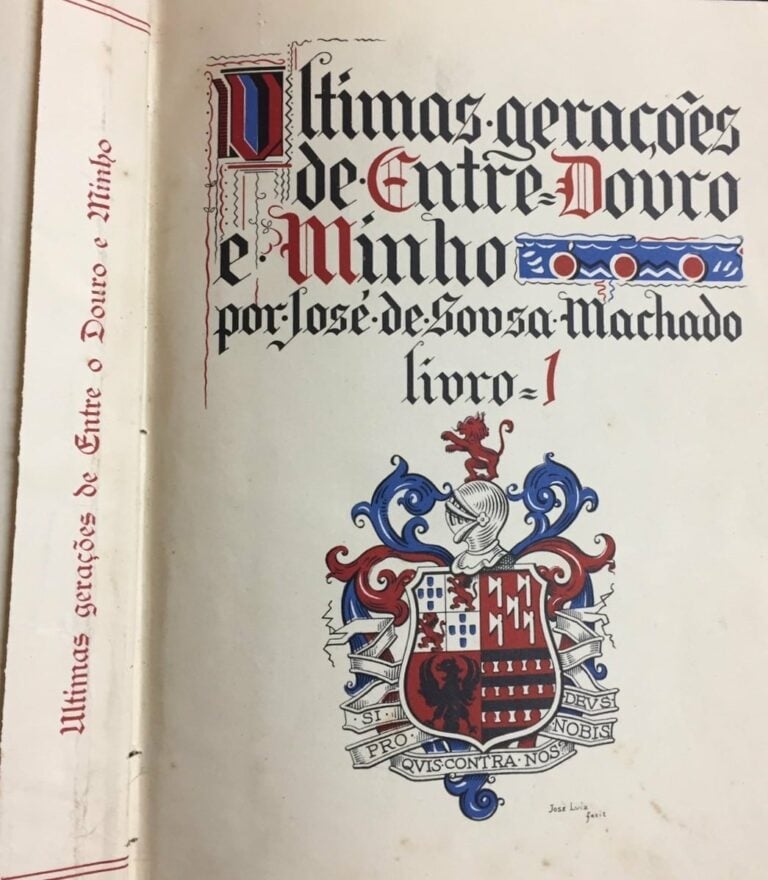 Ultimas gerações de Entre o Douro e Minho
Ultimas·gerações
de·Entre=Dovro
e·Minho
por·José·de·Sovsa·Machado
livro=1
SI·
DEVS
PRO·
NOBIS
QVIS·CONTRA·NOS·
José Luiz
fecit